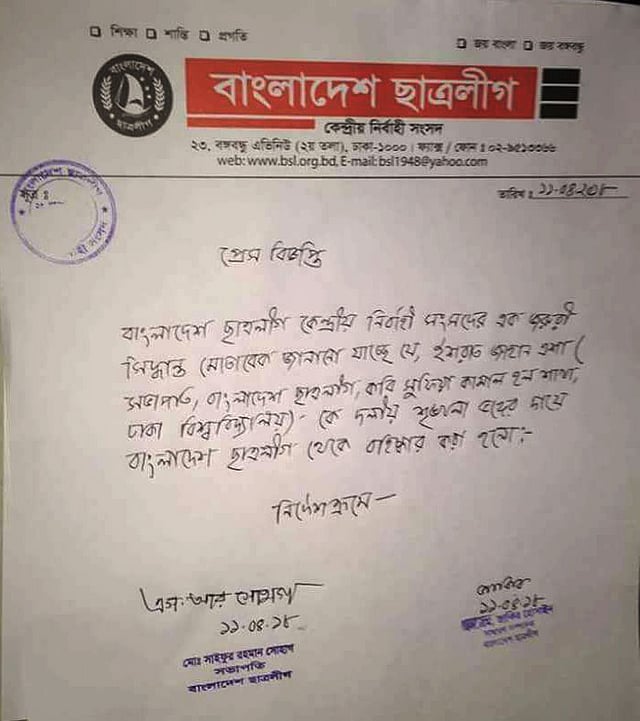 শিক্ষা শান্তি প্রগতি
জয় বাংলা জয় বঙ্গবন্ধু
বাংলাদেশ
ছাত্রলীগ
বাংলাদেশ ছাত্রলীগ
কেন্দ্রীয় নির্বাহী সংসদ
২৩, বঙ্গবন্ধু এভিনিউ (২য় তলা), ঢাকা-১০০০। ফ্যাক্স / ফোন : ০২-৯৫১৩০৬৬
web: www.bsl.org.bd, E-mail: bsl1948@yahoo.com
সূত্র :
তারিখ : ১১-০৪-২০১৮
প্রেস বিজ্ঞপ্তি
বাংলাদেশ ছাত্রলীগ কেন্দ্রীয় নির্বাহী সংসদের এক জরুরী
সিদ্ধান্ত মোতাবেক জানানো যাচ্ছে যে, ইশরাত জাহান এশা (
সভাপতি, বাংলাদেশ ছাত্রলীগ, কবি সুফিয়া কামাল হল শাখা,
ঢাকা বিশ্ববিদ্যালয়)- কে দলীয় শৃঙ্খলা ভঙ্গের দায়ে
বাংলাদেশ ছাত্রলীগ থেকে বহিষ্কার করা হলো:-
নির্দেশক্রমে—
এস. আর সোহাগ
১১-০৪-১৮
মোঃ সাইফুর রহমান সোহাগ
সভাপতি
বাংলাদেশ ছাত্রলীগ
জাকির
১১-০৪-১৮
এস.এম. জাকির হোসাইন
সাধারণ সম্পাদক
বাংলাদেশ ছাত্রলীগ